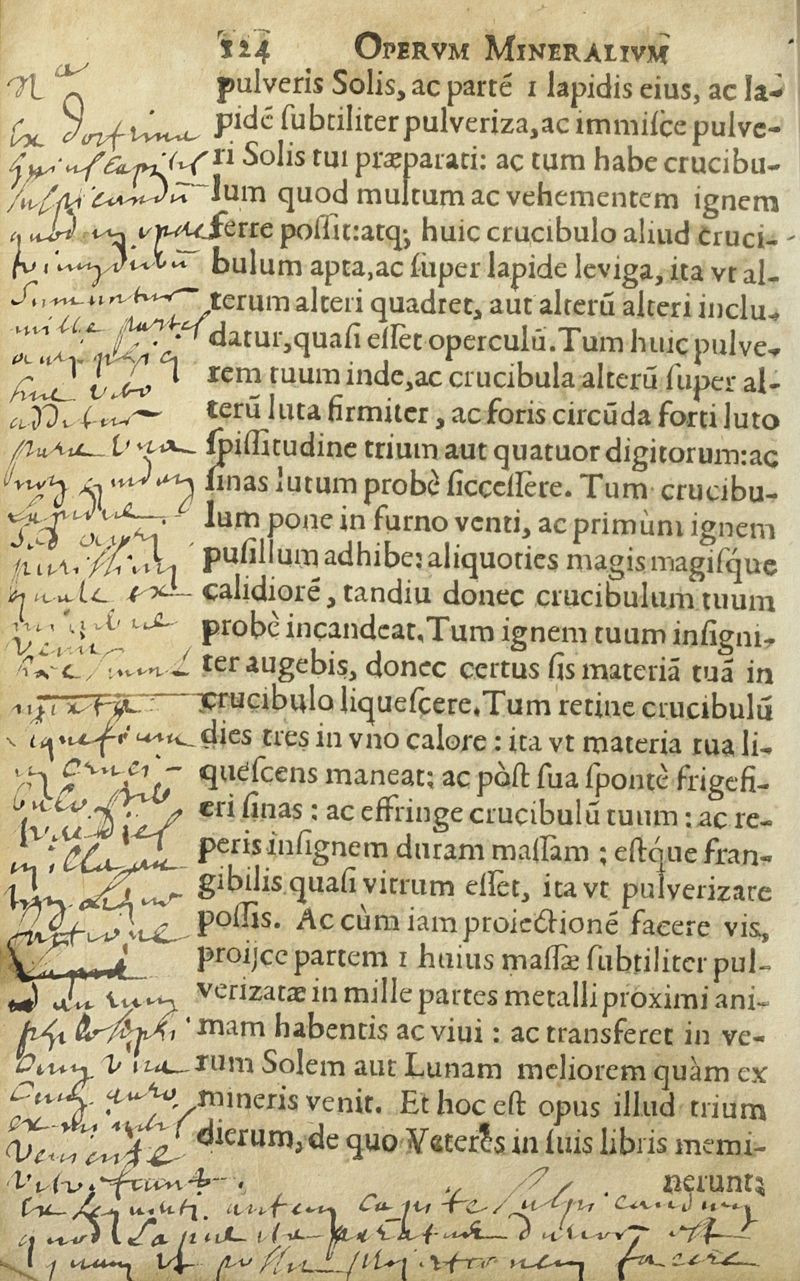 124 OPERVM MINERALIVM
pulveris Solis, ac partē 1 lapidis eius, ac la-
pidē ſubtiliter pulveriza, ac immiſce pulve-
ri Solis tui præparati: ac tum habe crucibu-
lum quod multum ac vehementem ignem
ferre poſſit: atq; huic crucibulo aliud cruci-
bulum apta, ac ſuper lapide leviga, ita vt al-
terum alteri quadret, aut alterū alteri inclu-
datur, quaſi eſſet operculū. Tum huic pulve-
rem tuum inde, ac crucibula alterū ſuper al-
terū luta firmiter, ac foris circūda forti luto
ſpiſſitudine trium aut quatuor digitorum: ac
ſinas lutum probè ſicceſſere. Tum crucibu-
lum pone in furno venti, ac primùm ignem
puſillum adhibe; aliquoties magis magiſq́ue
calidiorē, tandiu donec crucibulum tuum
probè incandeat. Tum ignem tuum inſigni-
ter augebis, donec certus ſis materiā tuā in
crucibulo liqueſcere. Tum retine crucibulū
dies tres in vno calore: ita vt materia tua li-
queſcens maneat; ac pòſt ſua ſpontè frigefi-
eri ſinas: ac effringe crucibulū tuum: ac re-
peris inſignem duram maſſam; eſtq́ue fran-
gibilis quaſi vitrum eſſet, ita vt pulverizare
poſſis. Ac cùm iam proiectionē facere vis,
proijce partem 1 huius maſſæ ſubtiliter pul-
verizatæ in mille partes metalli proximi ani-
mam habentis ac viui: ac transferet in ve-
rum Solem aut Lunam meliorem quàm ex
mineris venit. Et hoc eſt opus illud trium
dierum, de quo Veteres in ſuis libris memi-
nerunt;
Na
Ex doctrina
huius capitis
ſuſpicandū
quod
Sumuntur
mille partes
auri
ſine
additur
parte vna
non
Lapidis
Sed auri
puriſſimi
quale ex
venit
Hæc ſimul
mixta
liquefiant
in cruci-
bulo
tres dies
in illa
philoſophi
Cum vna
Cum auro
ex
Veniente
autem capite ſuſpicandum
quod Lapis ita
quam vt poſſit projectionem facere